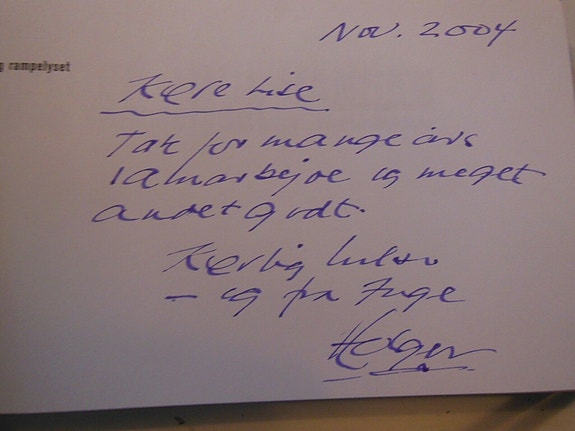 Nov. 2004
g rampelyset
Kære Lise
Tak for mange års
samarbejde og meget
andet godt.
Kærlig hilsen
– og fra Inge
Holger